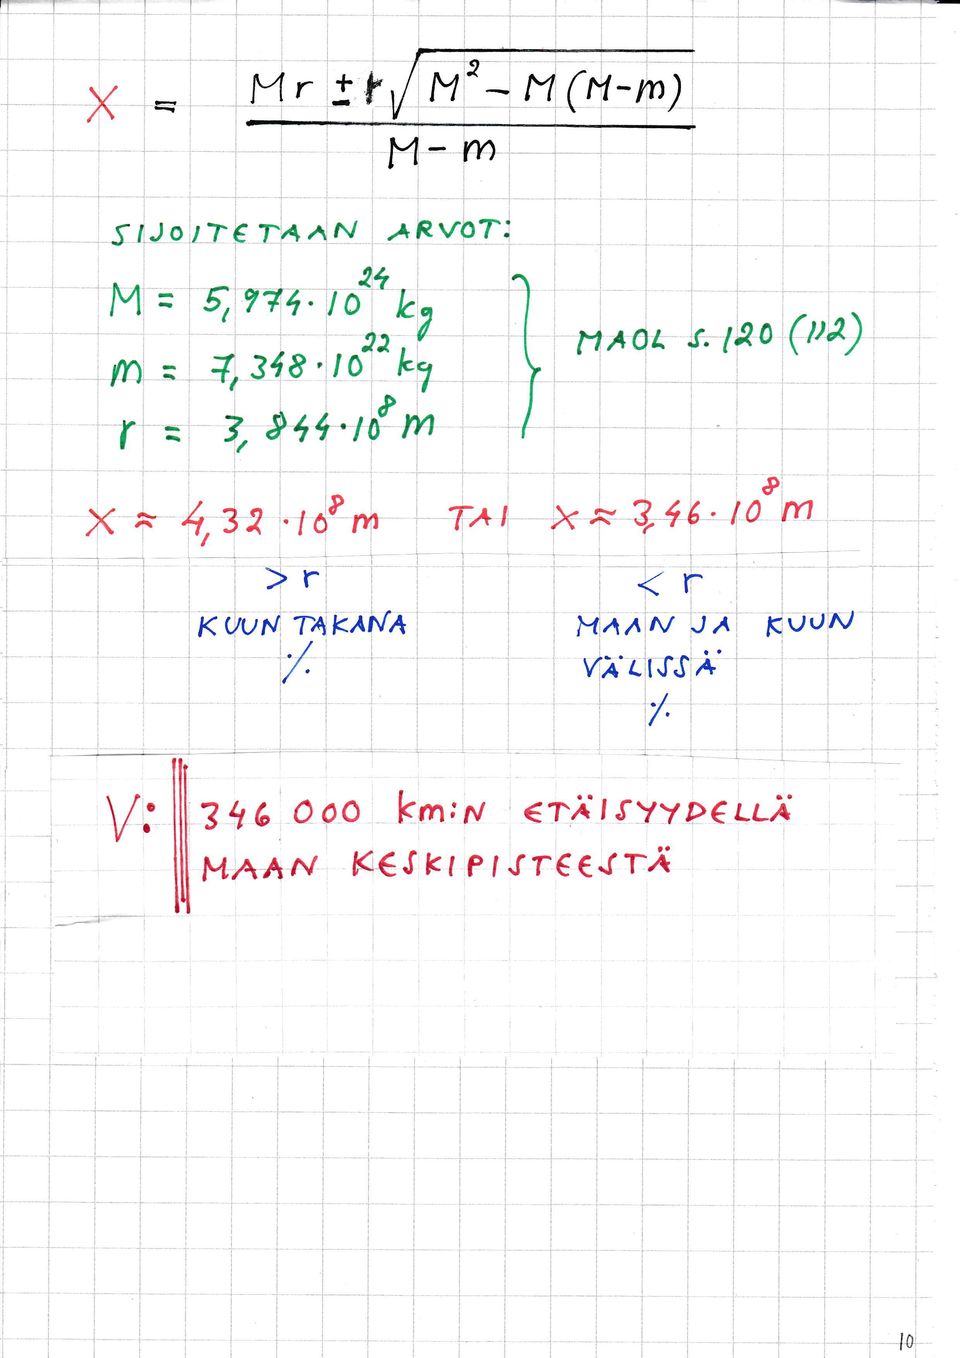 X = Mr ± r√(M² − M(M−m)) / M−m
SIJOITETAAN ARVOT:
M = 5,974·10²⁴ kg
m = 7,348·10²² kg
r = 3,844·10⁸ m
} MAOL s. 120 (112)
X ≈ 4,32·10⁸ m TAI X ≈ 3,46·10⁸ m
> r < r
KUUN TAKANA MAAN JA KUUN
VÄLISSÄ
·/. ·/.
V: 346 000 km:N ETÄISYYDELLÄ
MAAN KESKIPISTEESTÄ
10